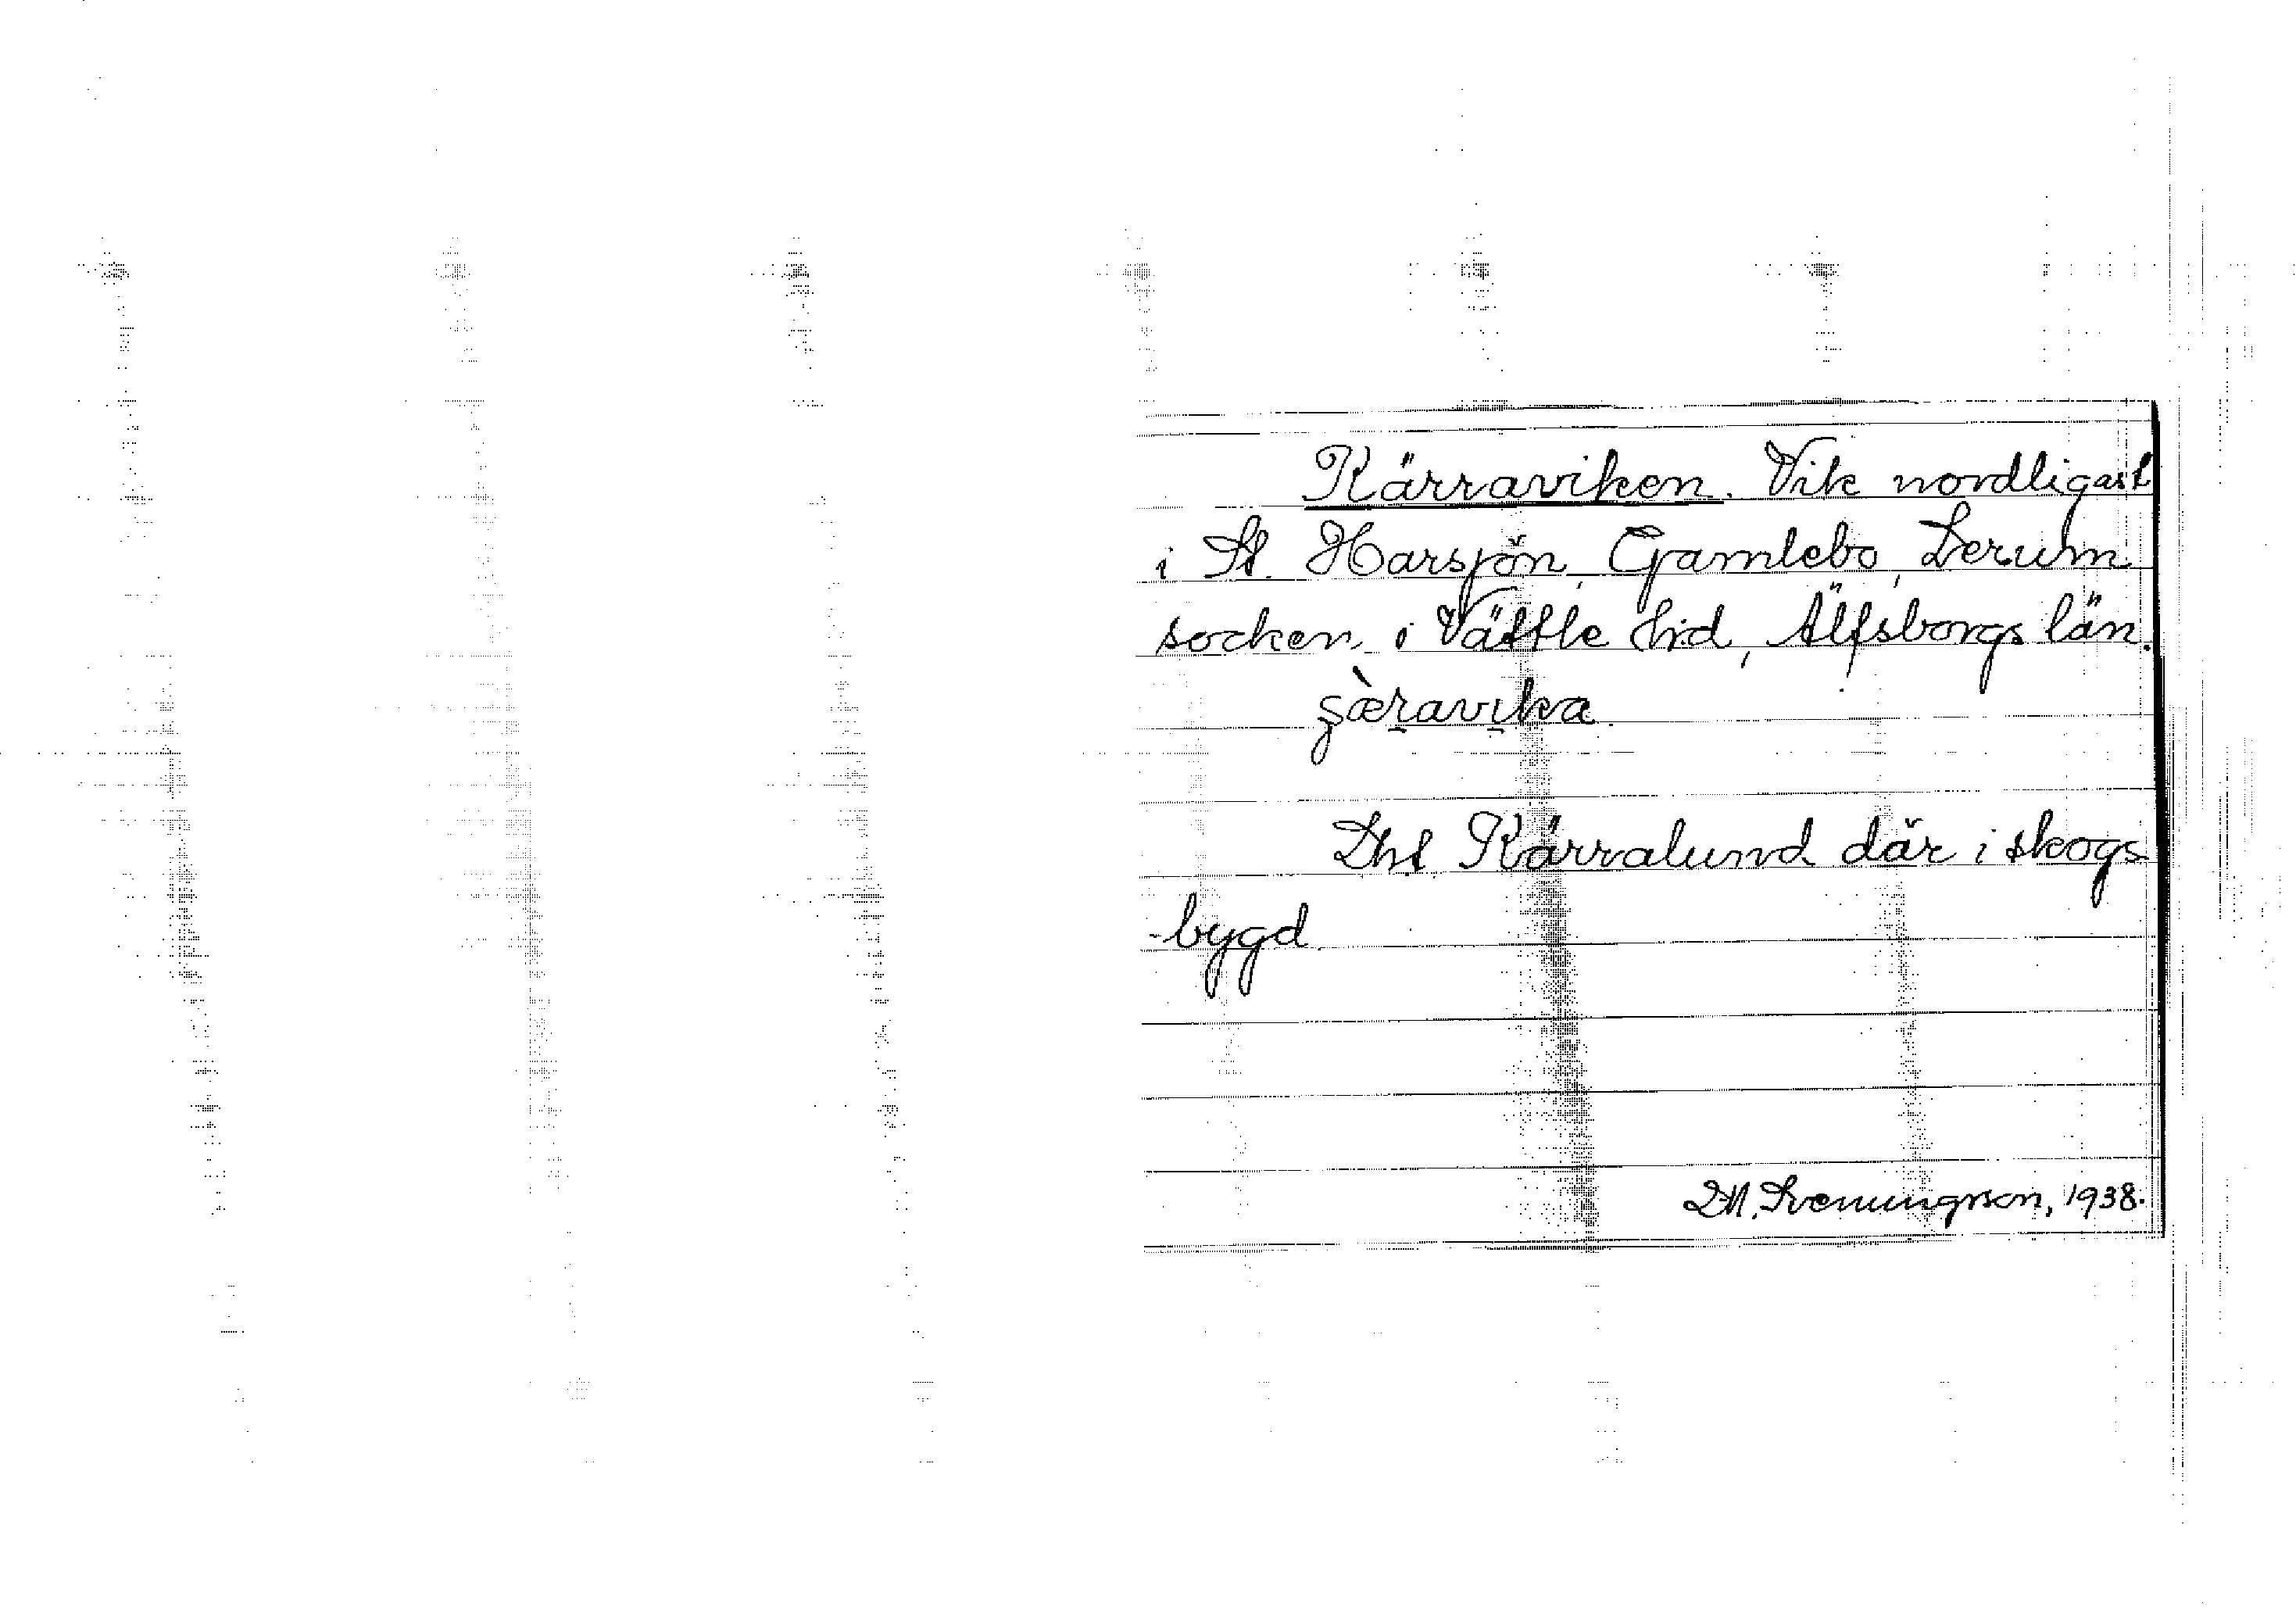 Kärraviken. Vik nordligast
i St. Harsjön, Gamlebo, Lerum
socken i Vättle hd, Älfsborgs län.
Kärralund där i skogs
-bygd.
Svenungsson, 1938.